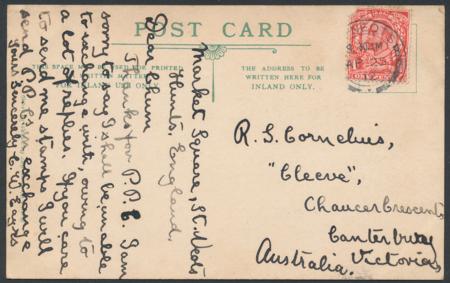 POST CARD
THIS SPACE MAY BE USED FOR PRINTED
OR WRITTEN MATTER
FOR INLAND USE ONLY.
THE ADDRESS TO BE
WRITTEN HERE FOR
INLAND ONLY.
Market Square, St. Neots
Hunts. England.
Dear Sir
Thanks for P.P.C. I am
sorry to say I shall be unable
to exchange with, owing to
a lot of replies. If you care
to send me stamps I will
send P.P.C.s in exchange
Yours Sincerely
R. S. Cornelius,
"Cleeve",
Chaucer Crescent,
Canterbury
Victoria,
Australia.